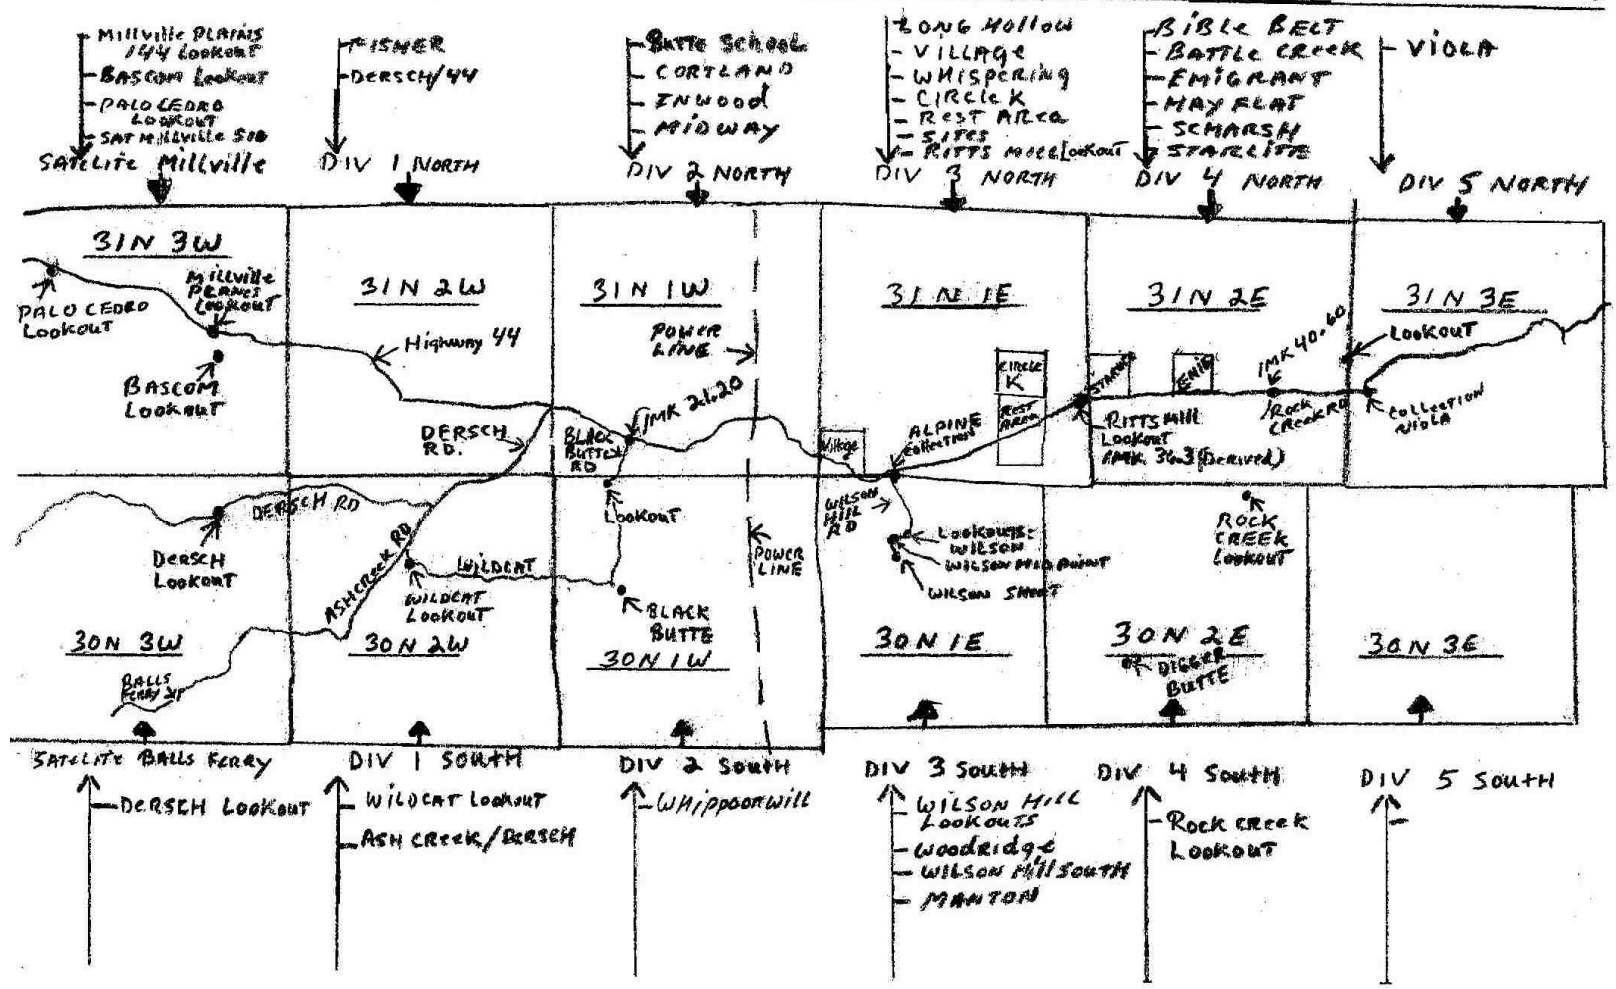 Millville PLAINS
144 Lookout
BASCOM Lookout
PALO CEDRO
LOOKOUT
SAT Millville SIB
SATELITE Millville
FISHER
DERSCH/44
DIV 1 NORTH
Butte School
CORTLAND
INWOOD
MIDWAY
DIV 2 NORTH
LONG HOLLOW
VILLAGE
WHISPERING
CIRCLE K
REST AREA
SITES
RITTS MILL Lookout
DIV 3 NORTH
BIBLE BELT
BATTLE CREEK
EMIGRANT
HAY FLAT
SCHARSH
STARLITE
DIV 4 NORTH
VIOLA
DIV 5 NORTH
31N 3W
PALO CEDRO
LOOKOUT
Millville
PLANES
LOOKOUT
BASCOM
LOOKOUT
31N 2W
Highway 44
DERSCH
RD.
31N 1W
POWER
LINE
IMK 21.20
BLACK
BUTTE
RD
31N 1E
CIRCLE
K
REST
AREA
Village
ALPINE
Collection
31N 2E
EMIG
IMK 40.60
ROCK
CREEK RD
RITTS Mill
LOOKOUT
IMK 36.3 (Derived)
31N 3E
LOOKOUT
COLLECTION
VIOLA
DERSCH RD
DERSCH
LOOKOUT
30N 3W
BALLS
FERRY
ASHCREEK RD
WILDCAT
WILDCAT
LOOKOUT
30N 2W
LOOKOUT
BLACK
BUTTE
30N 1W
POWER
LINE
WILSON
HILL
RD
LOOKOUTS:
WILSON
WILSON MIDPOINT
WILSON SHORT
30N 1E
ROCK
CREEK
LOOKOUT
30N 2E
DIGGER
BUTTE
30N 3E
SATELITE BALLS FERRY
DERSCH LOOKOUT
DIV 1 SOUTH
WILDCAT LOOKOUT
ASH CREEK/DERSCH
DIV 2 SOUTH
WHIPPOORWILL
DIV 3 SOUTH
WILSON HILL
LOOKOUTS
WOODRIDGE
WILSON HILL SOUTH
MANTON
DIV 4 SOUTH
ROCK CREEK
LOOKOUT
DIV 5 SOUTH